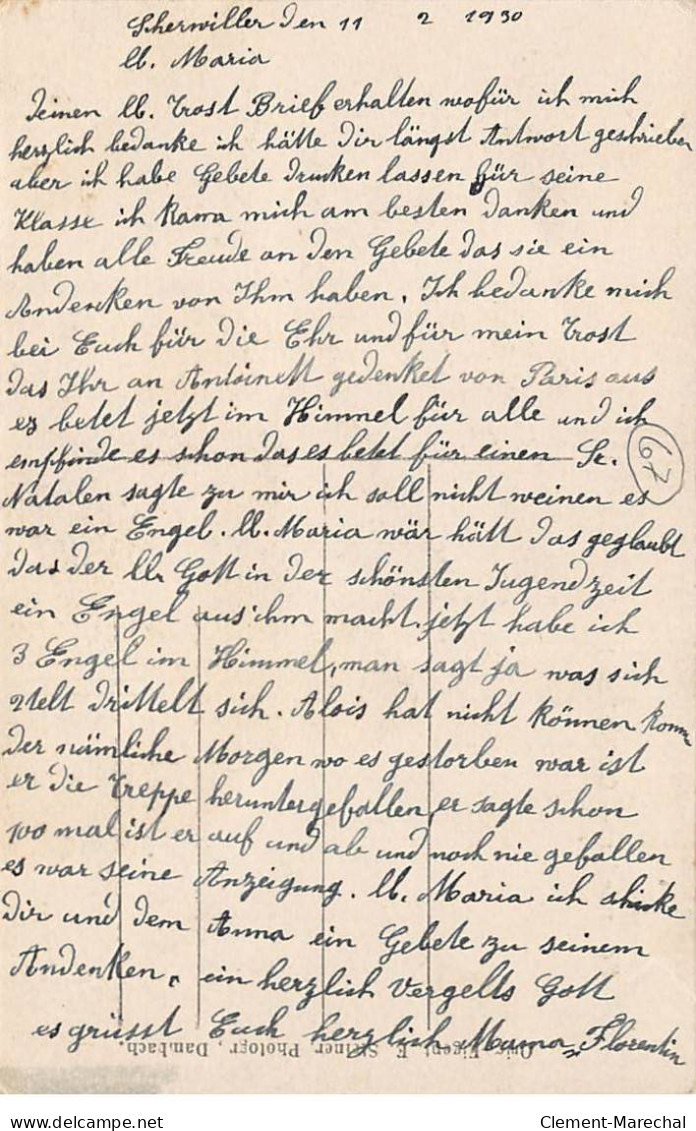 Scherwiller den 11 2 1930
ll. Maria
Deinen ll. Trost Brief erhalten wofür ich mich
herzlich bedanke ich hätte dir längst Antwort geschrieben
aber ich habe Gebete drucken lassen für seine
Klasse ich kama mich am besten danken und
haben alle Freude an den Gebete das sie ein
Andenken von Ihm haben. Ich bedanke mich
bei Euch für die Ehr und für mein Trost
das Ihr an Antoinett gedenket von Paris aus
es betet jetzt im Himmel für alle und ich
empfinde es schon das es betet für einen Sr.
67
Natalen sagte zu mir ich soll nicht weinen es
war ein Engel. ll. Maria wär hätt das geglaubt
das der ll. Gott in der schönsten Jugendzeit
ein Engel aus ihm macht. jetzt habe ich
3 Engel im Himmel, man sagt ja was sich
2telt drittelt sich. Alois hat nicht können komm
der nämliche Morgen wo es gestorben war ist
er die Treppe heruntergefallen, er sagte schon
100 mal ist er auf und ab und noch nie gefallen
es war seine Anzeigung. ll. Maria ich schicke
dir und dem Anna ein Gebete zu seinem
Andenken, ein herzlich Vergelts Gott
es grüsst Euch herzlich Mama, Florentin
Orig. Eigent. E. Steiner, Photogr., Dambach.
delcampe.net
Clement-Marechal